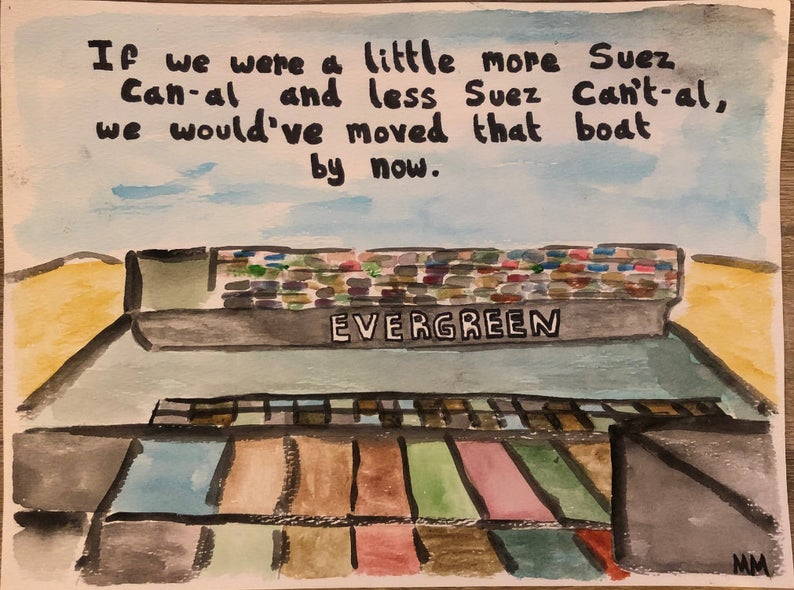 If we were a little more Suez
Can-al and less Suez Can't-al,
we would've moved that boat
by now.
EVERGREEN
MM